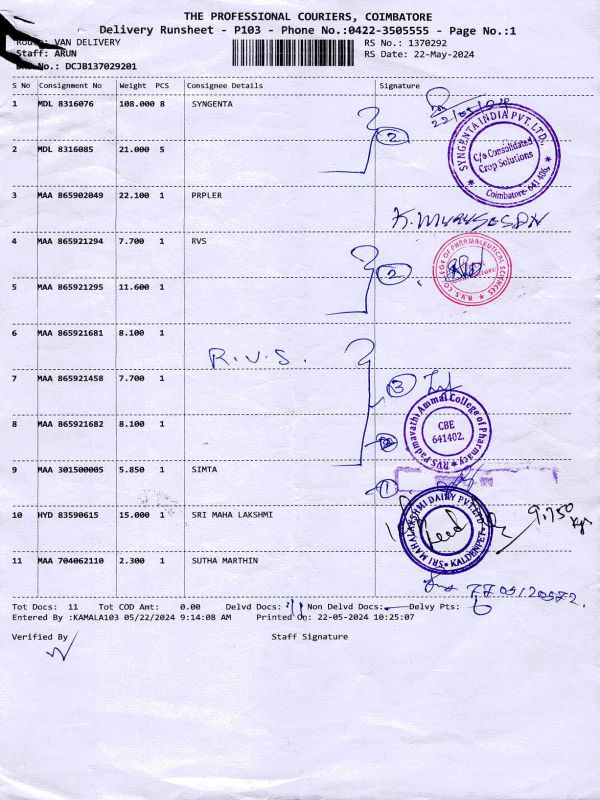 THE PROFESSIONAL COURIERS, COIMBATORE
Delivery Runsheet - P103 - Phone No.:0422-3505555 - Page No.:1
Route: VAN DELIVERY RS No.: 1370292
Staff: ARUN RS Date: 22-May-2024
No.: DCJB137029201
S No Consignment No Weight PCS Consignee Details Signature
1 MDL 8316076 108.000 8 SYNGENTA
22/05/24
SYNGENTA INDIA PVT. LTD.,
C/o Consolidated
Crop Solutions
Coimbatore- 641 406.
2
2 MDL 8316085 21.000 5
3 MAA 865902049 22.100 1 PRPLER
K. MURUGESAN
4 MAA 865921294 7.700 1 RVS
R.V.S. COLLEGE OF PHARMACEUTICAL SCIENCES
2
5 MAA 865921295 11.600 1
6 MAA 865921681 8.100 1
R.V.S.
7 MAA 865921458 7.700 1
3
RVS Padmavathi Ammal College of Pharmacy
CBE
641402.
8 MAA 865921682 8.100 1
9 MAA 301500005 5.850 1 SIMTA
1
10 HYD 83590615 15.000 1 SRI MAHA LAKSHMI
SRI MAHALAKSHMI DAIRY PVT.LTD
KALDENPET
9.750 kgs
11 MAA 704062110 2.300 1 SUTHA MARTHIN
Tot Docs: 11 Tot COD Amt: 0.00 Delvd Docs: 11 Non Delvd Docs: Delvy Pts: 6
Entered By :KAMALA103 05/22/2024 9:14:08 AM Printed On: 22-05-2024 10:25:07
Verified By Staff Signature